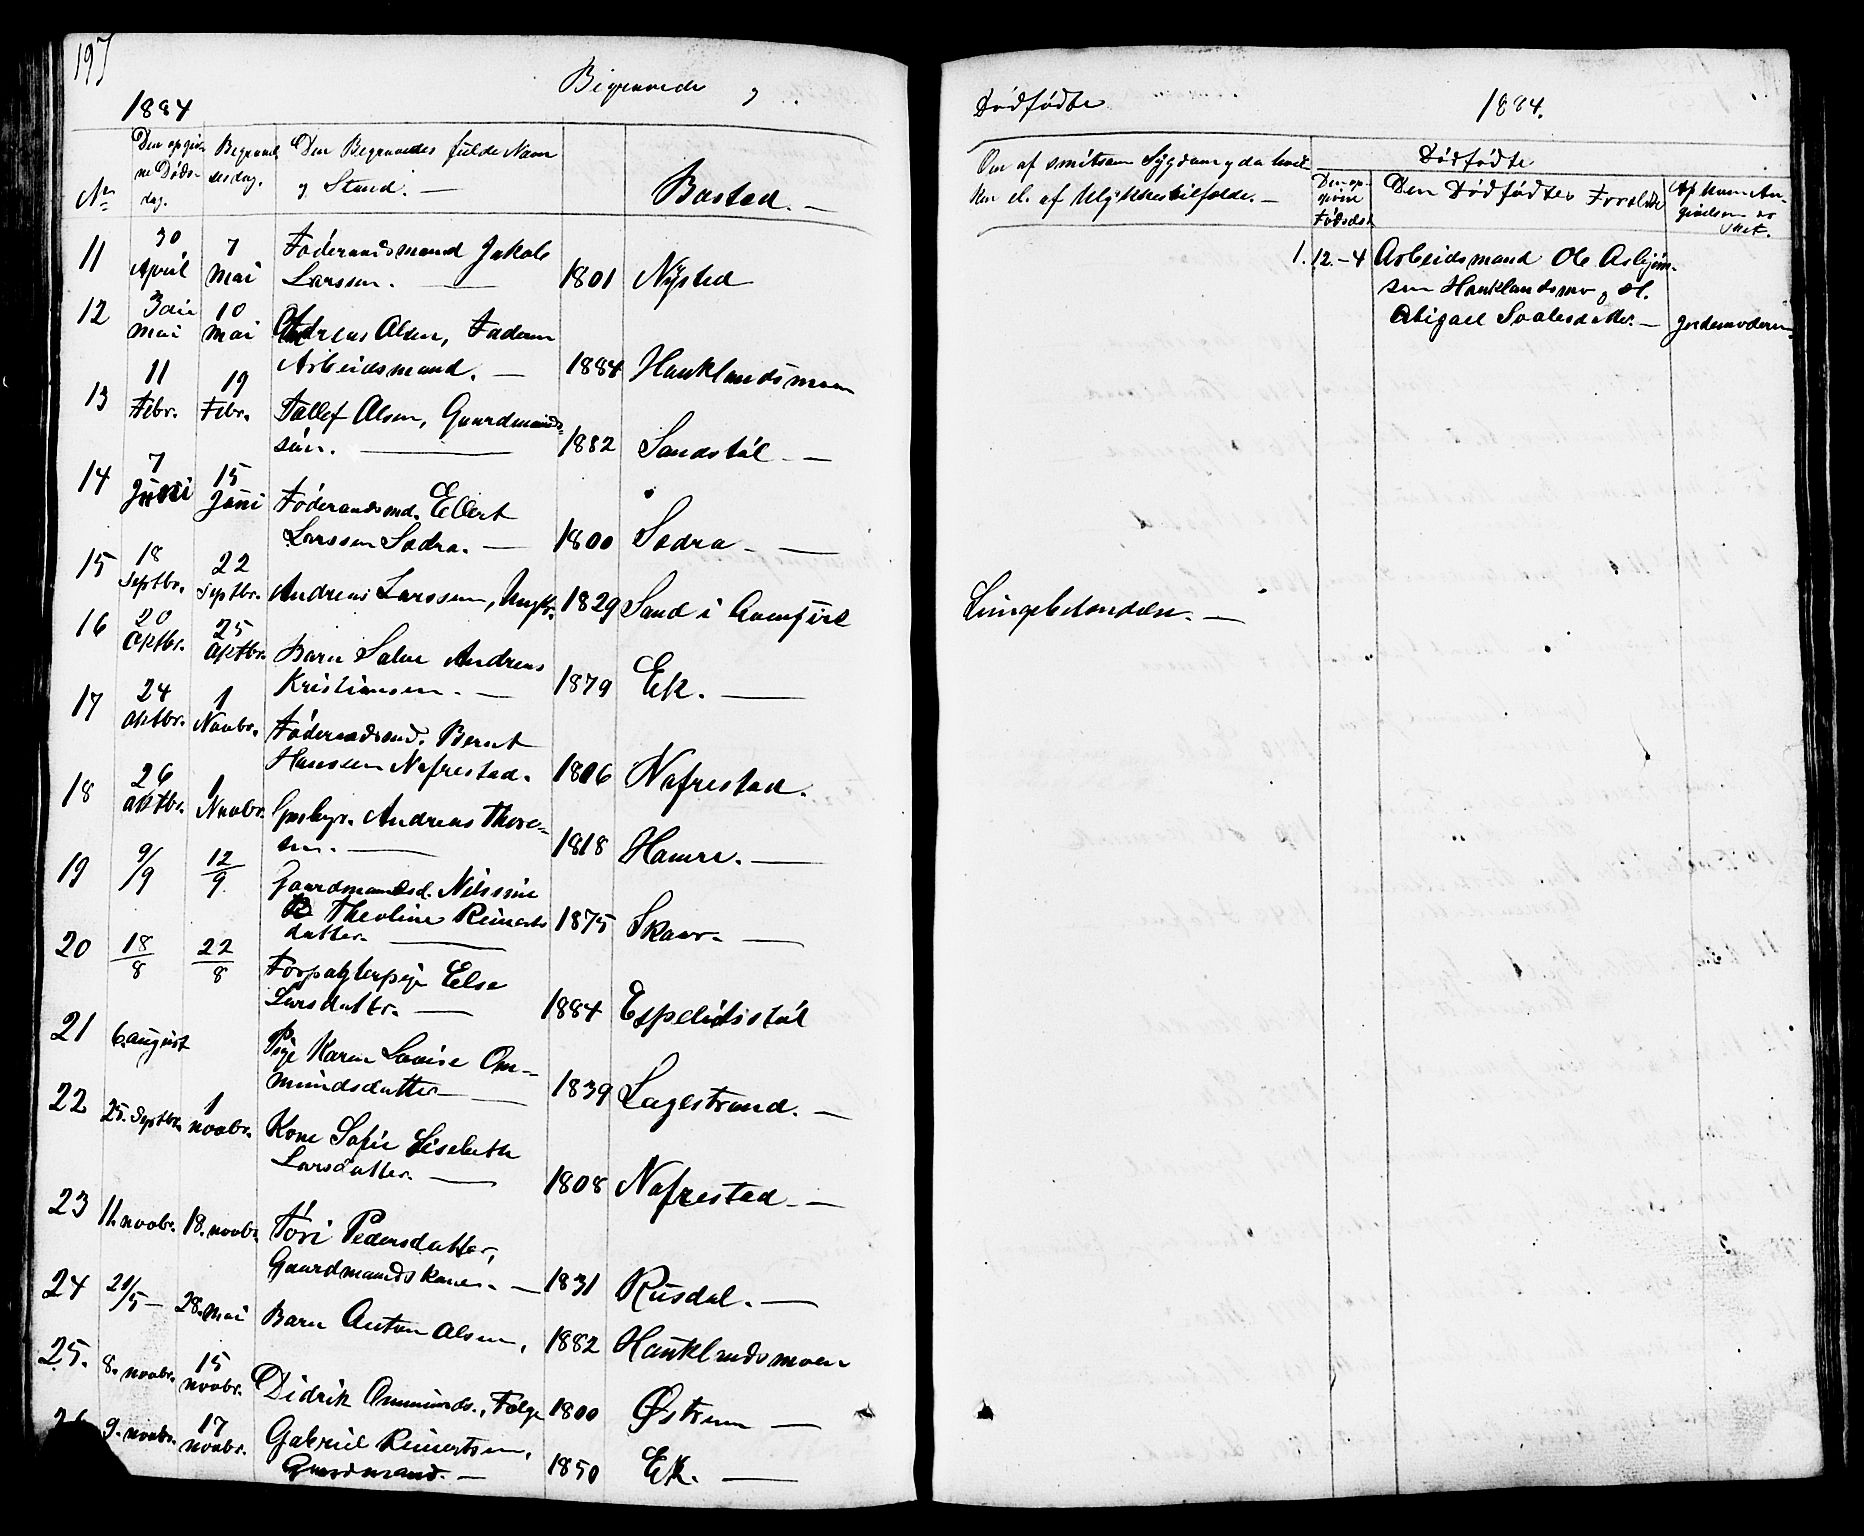 197
1884
Begravede og
Den opgiv-
ne Døds-
dag.
Begravel-
sesdag.
Den Begravedes fulde Navn
og Stand. —
No
Bosted. —
11
30
April
7
Mai
Føderaadsmand Jakob
Larssen. —
1801
Nysted
12
3die
Mai
10
Mai
Andreas Olsen, Faderen
Arbeidsmand. —
1884
Hauklandsmoen
13
11
Febr.
19
Febr.
Tallef Olsen, Gaardmands-
søn. —
1882
Sandstøl —
14
7
Juni
15
Juni
Føderaadsmd. Ellert
Larssen Sodra. —
1800
Sodra —
15
18
Septbr.
22
Septbr.
Andreas Larssen, Ungk.
1829
Sand i
16
20
Oktbr.
25
Oktbr.
Barn Salve Andreas
Kristiansen. —
1879
Ek. —
17
24
Oktbr.
1
Novbr.
Føderaadsmd. Bernt
Hanssen Nafrestad.
1806
Nafrestad.
18
26
Oktbr.
1
Novbr.
Andreas Thore-
sen. —
1818
Hamre. —
19
9/9
12/9
Gaardmandsd. Nilssine
Theoline Reinerts
datter. —
1875
Skaar. —
20
18/8
22/8
Forpagterpige Else
Larsdatter. —
1884
Espelidsstøl
21
6. august
Pige Karen Lovise Om-
mundsdatter —
1839
Lagestrand. —
22
25. Septbr.
1
novbr.
Kone Sofie Lisebeth
Larsdatter. —
1808
Nafrestad. —
23
11. novbr.
18. novbr.
Tori Pedersdatter,
Gaardmands kone. —
1831
Rusdal. —
24
21/5 —
28. mai
Barn Anton Olsen,
1882
Hauklandsmoen
25.
8. novbr.
15
novbr.
Didrik Ommunds., Følge
1800
Østrem —
26
9. novbr.
17
novbr.
Gabriel Reinertsen,
Gaardmand. —
1850
Ek. —
Dødfødte
1884.
Om af smitsom Sygdom og da hvil-
ken el. af Ulykkestilfælde. —
Dødfødte
Den op-
givne
Fødselsd.
Den Dødfødtes Forældre
Af hvem An-
givelsen er
sket.
1.
12.-4
Arbeidsmand Ole Asbjørn-
sen Hauklandsmo og H.
Abigael Soalesdatter. —
Jordemoderen
Lungebetændelse. —